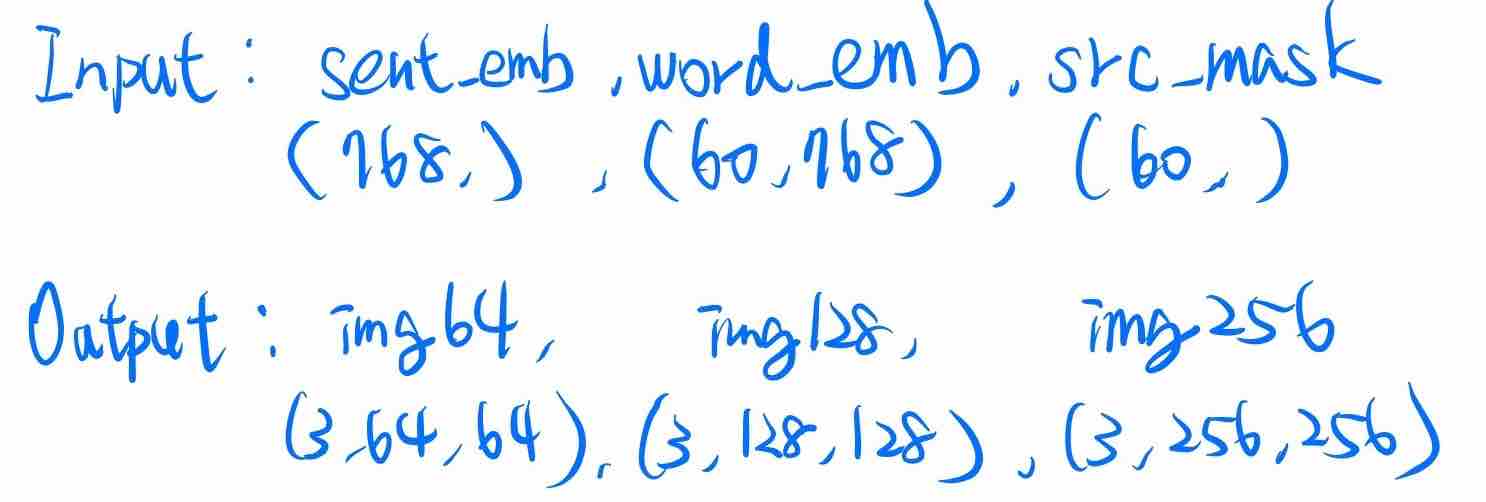 Input : sent_emb , word_emb , src_mask
(768,) , (60,768) , (60,)
Output : img64, img128, img256
(3,64,64), (3,128,128), (3,256,256)